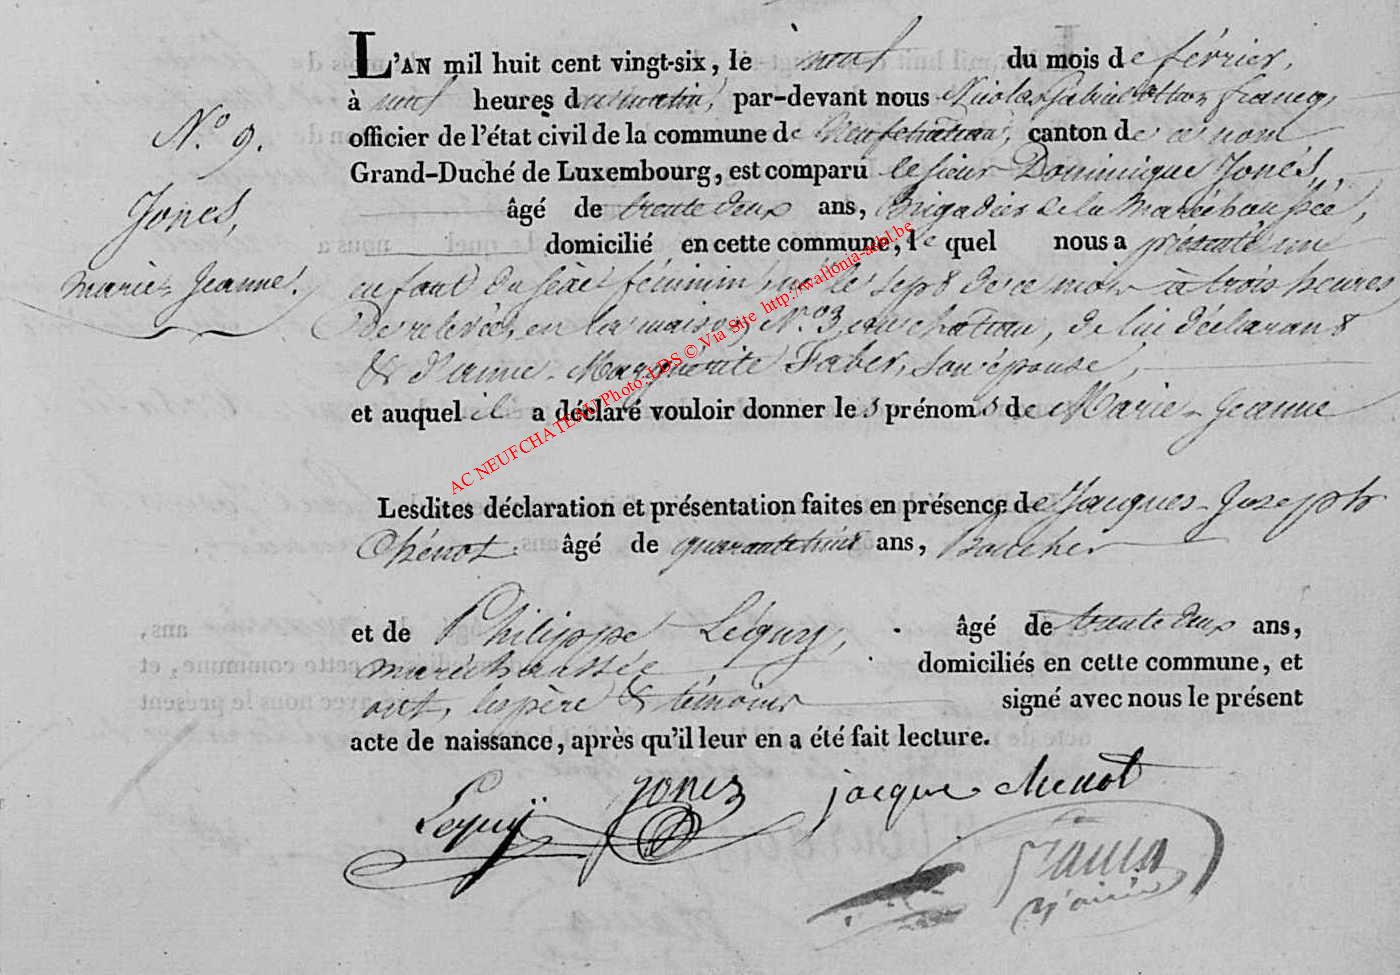 N.º 9.
Jones,
Marie-Jeanne.
L'AN mil huit cent vingt-six, le neuf du mois de février,
à neuf heures du matin, par-devant nous Nicolas Francq,
officier de l'état civil de la commune de Neufchateau, canton de ce nom
Grand-Duché de Luxembourg, est comparu le sieur Dominique Jones,
âgé de trente deux ans, Brigadier de la Maréchaussée,
domicilié en cette commune, le quel nous a présenté un
enfant du sexe féminin, né le sept de ce mois à trois heures
de relevée, en la maison N.º 3, au chateau, de lui déclarant
& d'anne-Marguerite Faber, son épouse,
et auquel il a déclaré vouloir donner les prénoms de Marie-Jeanne
Lesdites déclaration et présentation faites en présence de Jacques-Joseph
Chénot âgé de quarante huit ans,
et de Philippe Léquy, âgé de trente deux ans,
maréchaussée domiciliés en cette commune, et
ont, les père & témoins signé avec nous le présent
acte de naissance, après qu'il leur en a été fait lecture.
Lequÿ Jones jacque chenot
Francq
AC NEUFCHATEAU Photo-LDS © Via Site http://wallonia-asbl.be